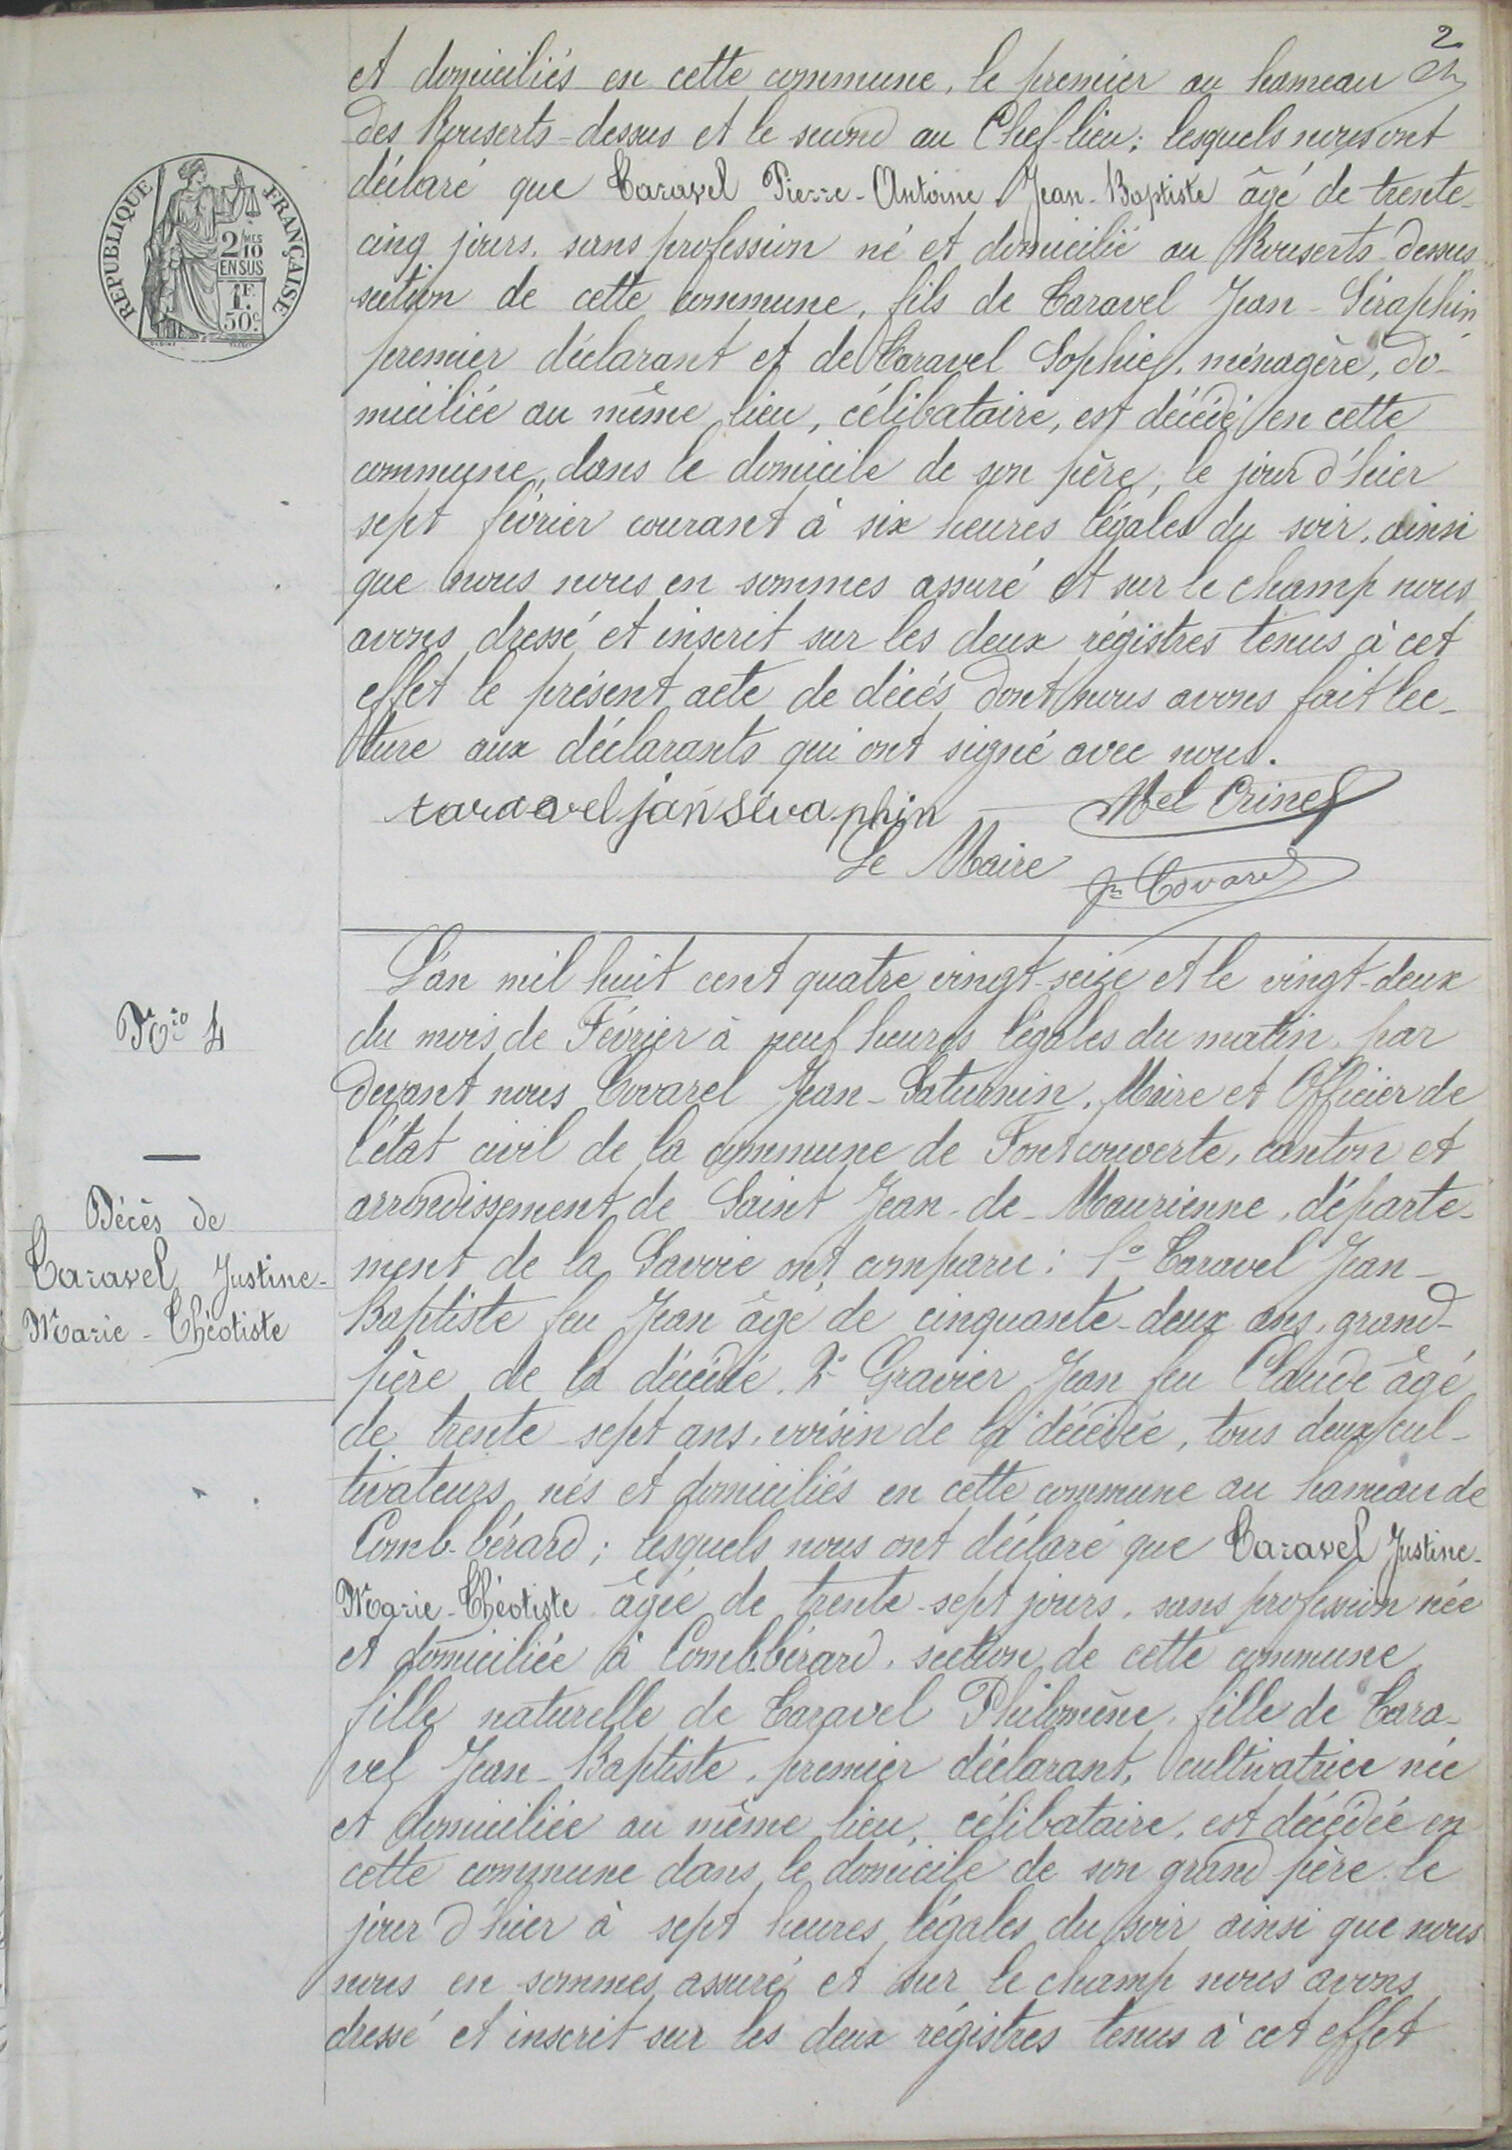 2
et domiciliés en cette commune, le premier au hameau
des Rouserts-dessus et le second au Chef-lieu; lesquels nous ont
déclaré que Caravel Pierre-Antoine Jean-Baptiste âgé de trente-
cinq jours, sans profession né et domicilié au Rouserts-dessus
section de cette commune, fils de Caravel Jean-Séraphin
premier déclarant et de Caravel Sophie, ménagère, do-
miciliée au même lieu, célibataire, est décédé en cette
commune, dans le domicile de son père, le jour d'hier
sept février courant à six heures légales du soir, ainsi
que nous nous en sommes assuré et sur le champ nous
avons dressé et inscrit sur les deux régistres tenus à cet
effet le présent acte de décés dont nous avons fait lec-
ture aux déclarants qui ont signé avec nous.
Le Maire
RÉPUBLIQUE FRANÇAISE
2/10MES
EN SUS
1F
50c
No 4
Décès de
Caravel Justine-
Marie-Théotiste
L'an mil huit cent quatre vingt-seize et le vingt-deux
du mois de Février à neuf heures légales du matin, par
devant nous Covarel Jean-Saturnin, Maire et Officier de
l'état civil de la commune de Fontcouverte, canton et
arrondissement de Saint Jean-de-Maurienne, départe-
ment de la Savoie ont comparu: 1o Caravel Jean-
Baptiste feu Jean âgé de cinquante-deux ans, grand-
père de la décédée. 2o Gravier Jean feu Claude âgé
de trente-sept ans, voisin de la décédée, tous deux cul-
tivateurs nés et domiciliés en cette commune au hameau de
Comb-bérard; lesquels nous ont déclaré que Caravel Justine-
Marie-Théotiste âgée de trente-sept jours, sans profession née
et domiciliée à Comb-bérard, section de cette commune
fille naturelle de Caravel Philomène, fille de Cara-
vel Jean-Baptiste, premier déclarant, cultivatrice née
et domiciliée au même lieu, célibataire, est décédée en
cette commune dans le domicile de son grand père le
jour d'hier à sept heures légales du soir ainsi que nous
nous en sommes assuré et sur le champ nous avons
dressé et inscrit sur les deux régistres tenus à cet effet